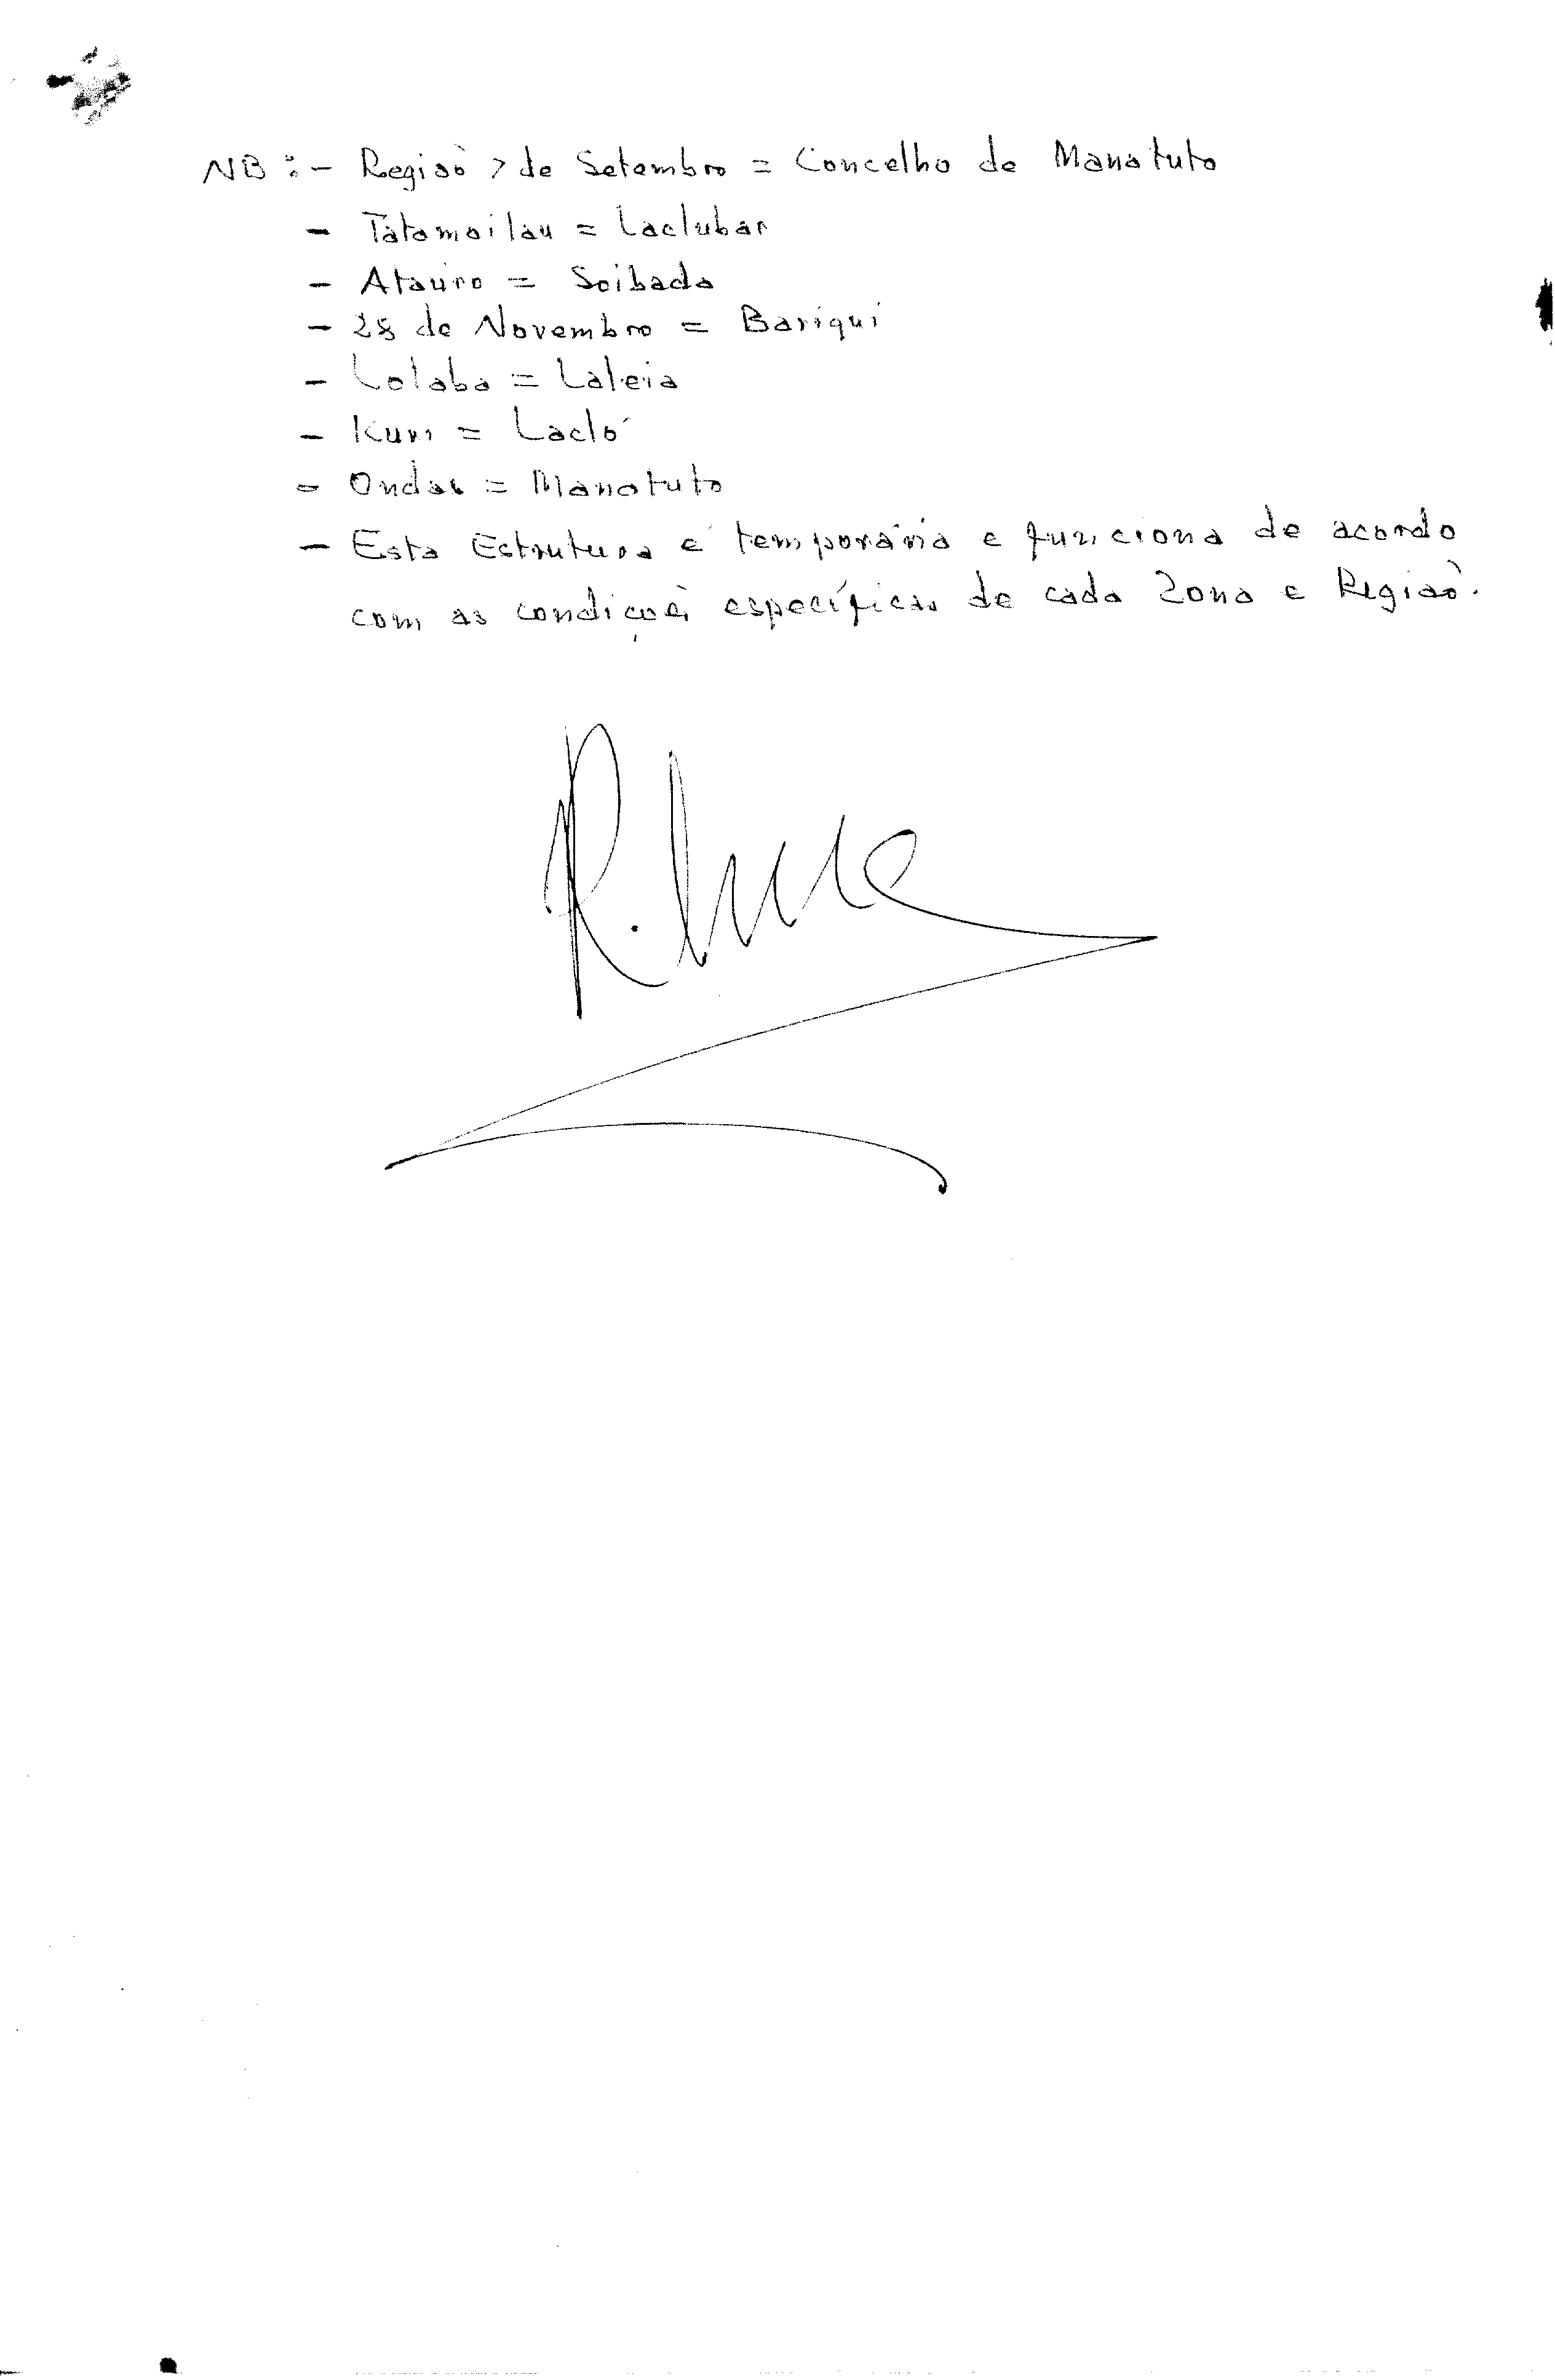 NB: - Região 7 de Setembro = Concelho de Manatuto
- Tatamailau = Laclubar
- Atauro = Soibada
- 28 de Novembro = Bariqui
- Lolaba = Laleia
- Kuri = Lacló
- Ondas = Manatuto
- Esta Estrutura é temporária e funciona de acordo
com as condições específicas de cada Zona e Região.